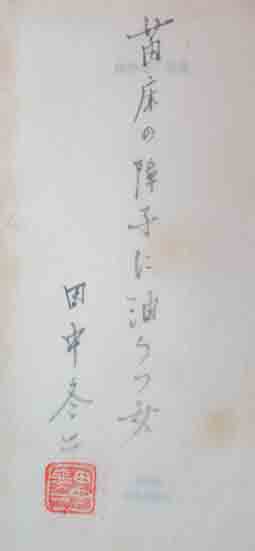 苗床の障子に油うつ女
田中冬二